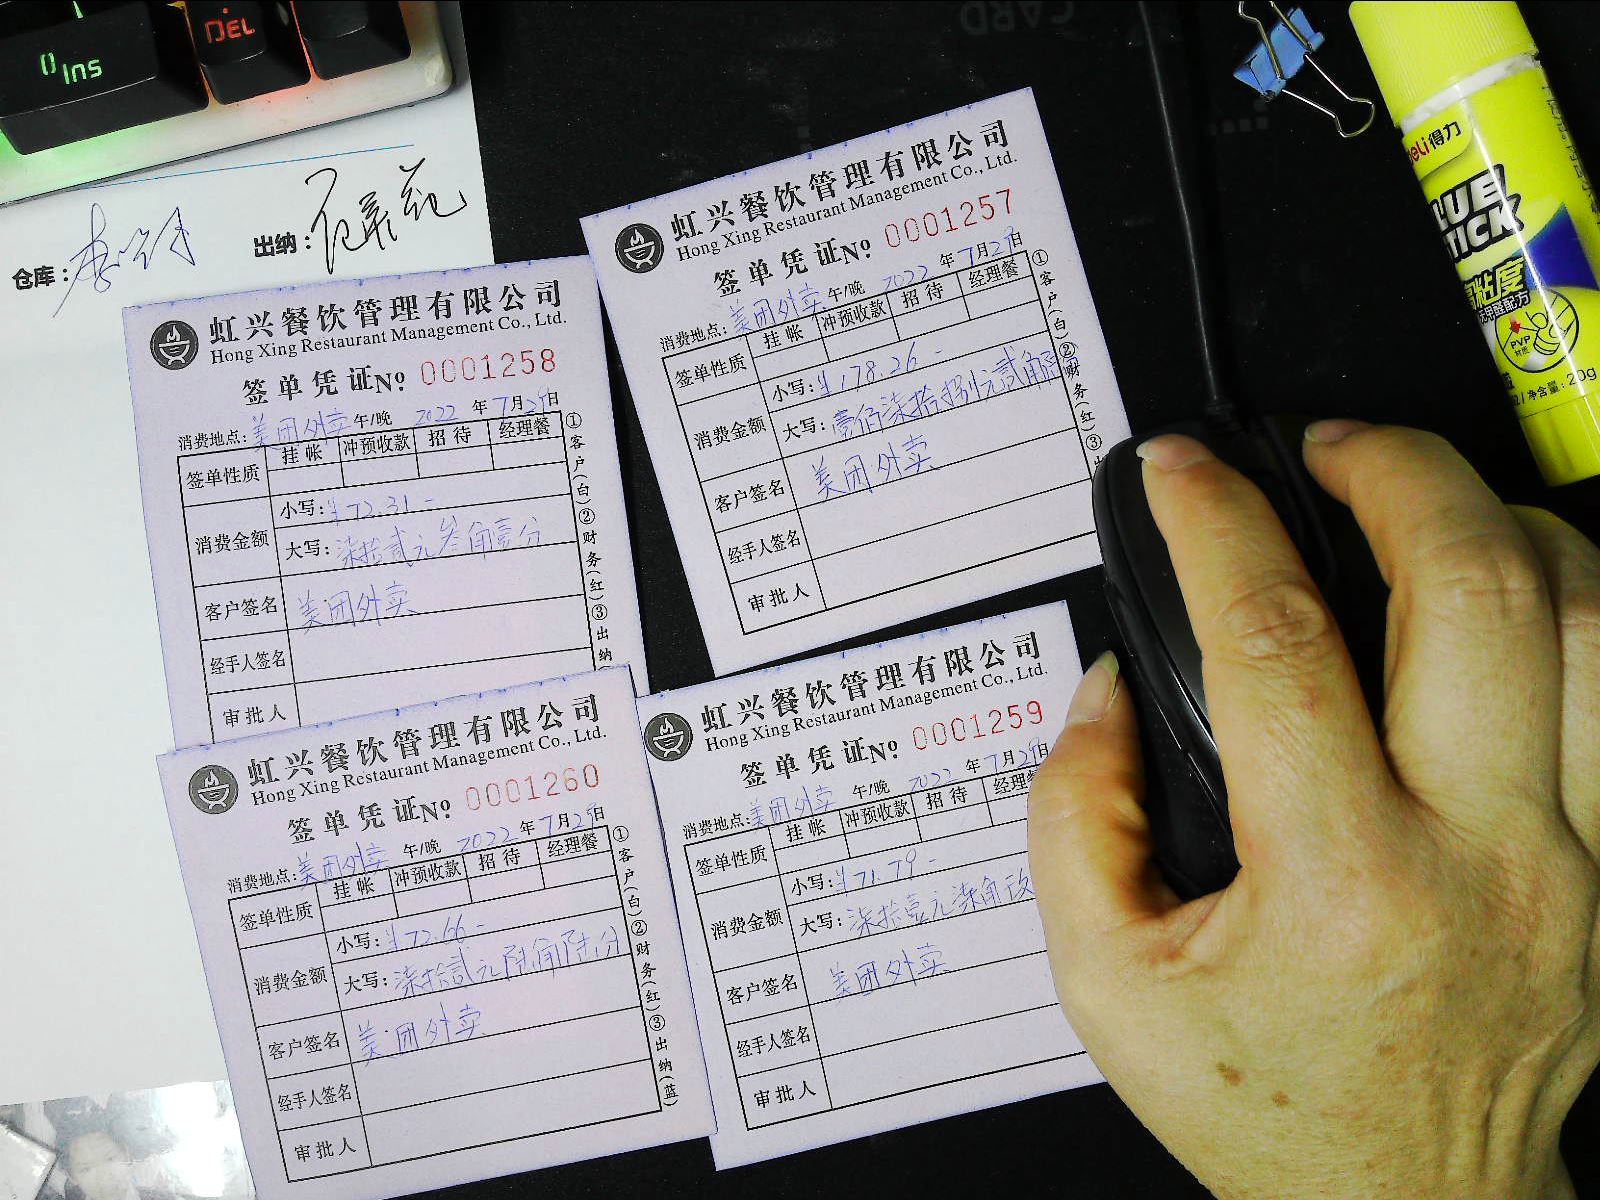 0 Ins
DEL
CARD
仓库:
出纳:
deli得力
GLUE
STICK
高粘度
PVP
材质
净含量:20g
虹兴餐饮管理有限公司
Hong Xing Restaurant Management Co., Ltd.
签单凭证№ 0001257
消费地点:美团外卖 午/晚 2022 年 7月29日
签单性质 挂帐 冲预收款 招待 经理餐
消费金额 小写:¥178.26-
大写:壹佰柒拾捌元贰角陆
客户签名 美团外卖
经手人签名
审批人
①客户(白)②财务(红)③出
虹兴餐饮管理有限公司
Hong Xing Restaurant Management Co., Ltd.
签单凭证№ 0001258
消费地点:美团外卖 午/晚 2022 年 7月29日
签单性质 挂帐 冲预收款 招待 经理餐
消费金额 小写:¥72.31-
大写:柒拾贰元叁角壹分
客户签名 美团外卖
经手人签名
审批人
①客户(白)②财务(红)③出纳
虹兴餐饮管理有限公司
Hong Xing Restaurant Management Co., Ltd.
签单凭证№ 0001259
消费地点:美团外卖 午/晚 2022 年 7月29日
签单性质 挂帐 冲预收款 招待 经理餐
消费金额 小写:¥71.79-
大写:柒拾壹元柒角玖
客户签名 美团外卖
经手人签名
审批人
虹兴餐饮管理有限公司
Hong Xing Restaurant Management Co., Ltd.
签单凭证№ 0001260
消费地点:美团外卖 午/晚 2022 年 7月29日
签单性质 挂帐 冲预收款 招待 经理餐
消费金额 小写:¥72.66-
大写:柒拾贰元陆角陆分
客户签名 美团外卖
经手人签名
审批人
①客户(白)②财务(红)③出纳(蓝)